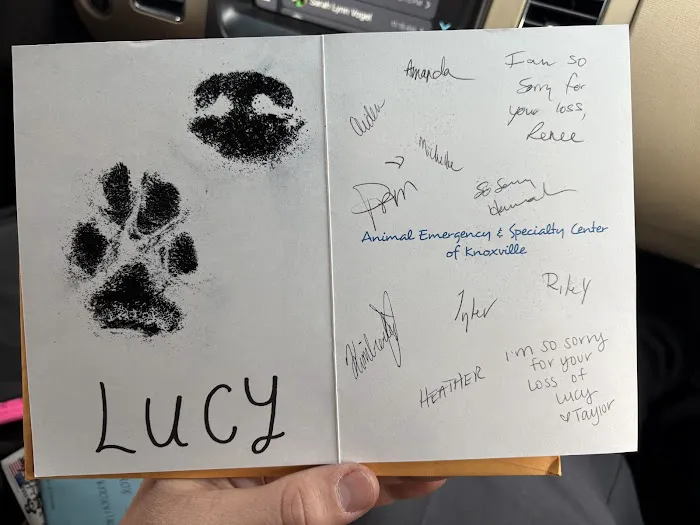 Sarah Lynn Vogel
LUCY
Amanda
I am so
sorry for
your loss,
Renee
Aiden
Michelle
So sorry
Hannah
Animal Emergency & Specialty Center
of Knoxville
Tyler
Riley
HEATHER
I'm so sorry
for your
loss of
Lucy
♡Taylor